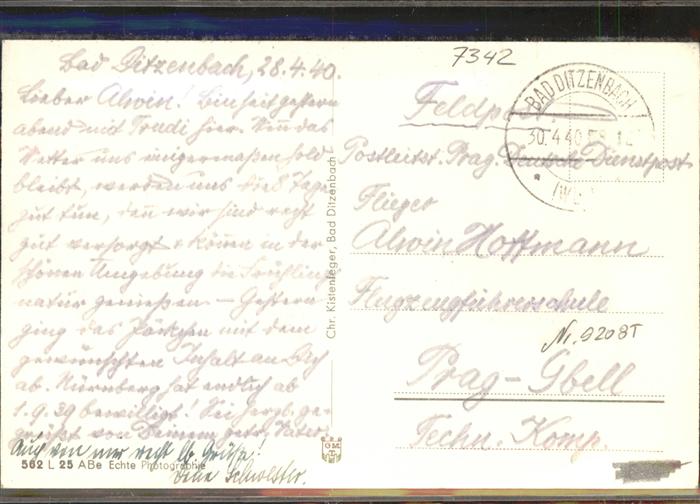 Bad Ditzenbach, 28.4.40.
Lieber Alwin! Bin seit gestern
abend mit Trudi hier. Wenn das
Wetter uns einigermaßen hold
bleibt, werden uns die 8 Tage
gut tun, denn wir sind recht
gut versorgt & können in der
schönen Umgebung die Frühlings-
natur genießen. — Gestern
ging das Päckchen mit dem
gewünschten Inhalt an Dich
ab. Nürnberg hat endlich ab
1.9.39 bewilligt! Sei herzl. ge-
grüßt von Deinem Vater
Auch von mir recht lb. Grüße!
Deine Schwester.
562 L 25 ABe Echte Photographie
Chr. Kistenfeger, Bad Ditzenbach
7342
Feldpost
BAD DITZENBACH
30.4.40
Postleitst. Prag. Deutsche Dienstpost
Flieger
Alwin Hoffmann
Flugzeugführerschule
Nr. 9208T
Prag-Gbell
Techn. Komp.